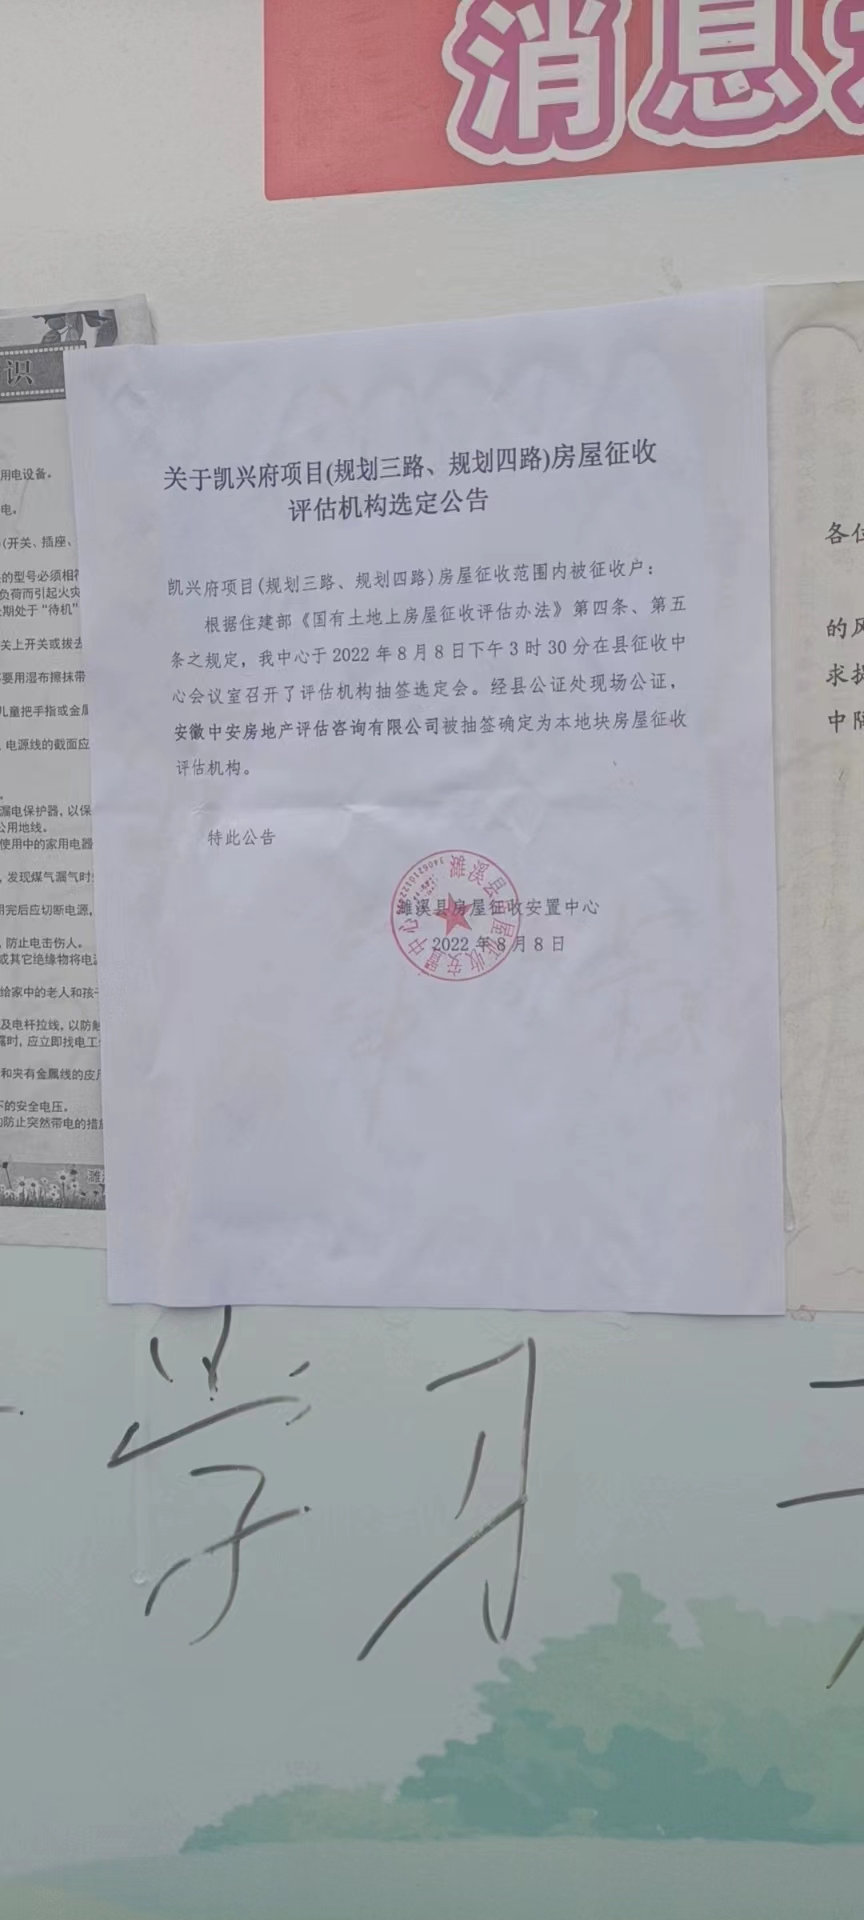 消息
识
用电设备。
电。
(开关、插座、
的型号必须相符
负荷而引起火灾
期处于“待机”
关上开关或拔去
要用湿布擦抹带
儿童把手指或金属
电源线的截面应
漏电保护器，以保
公用地线。
使用中的家用电器
，发现煤气漏气时
用完后应切断电源，
，防止电击伤人。
或其它绝缘物将电
给家中的老人和孩子
及电杆拉线，以防触
时，应立即找电工
和夹有金属线的皮
下的安全电压。
防止突然带电的措施
关于凯兴府项目(规划三路、规划四路)房屋征收
评估机构选定公告
凯兴府项目(规划三路、规划四路)房屋征收范围内被征收户：
根据住建部《国有土地上房屋征收评估办法》第四条、第五
条之规定，我中心于2022年8月8日下午3时30分在县征收中
心会议室召开了评估机构抽签选定会。经县公证处现场公证，
安徽中安房地产评估咨询有限公司被抽签确定为本地块房屋征收
评估机构。
特此公告
濉溪县房屋征收安置中心
2022年8月8日
濉溪县房屋征收安置中心
各位
的风
求提
中障
学习